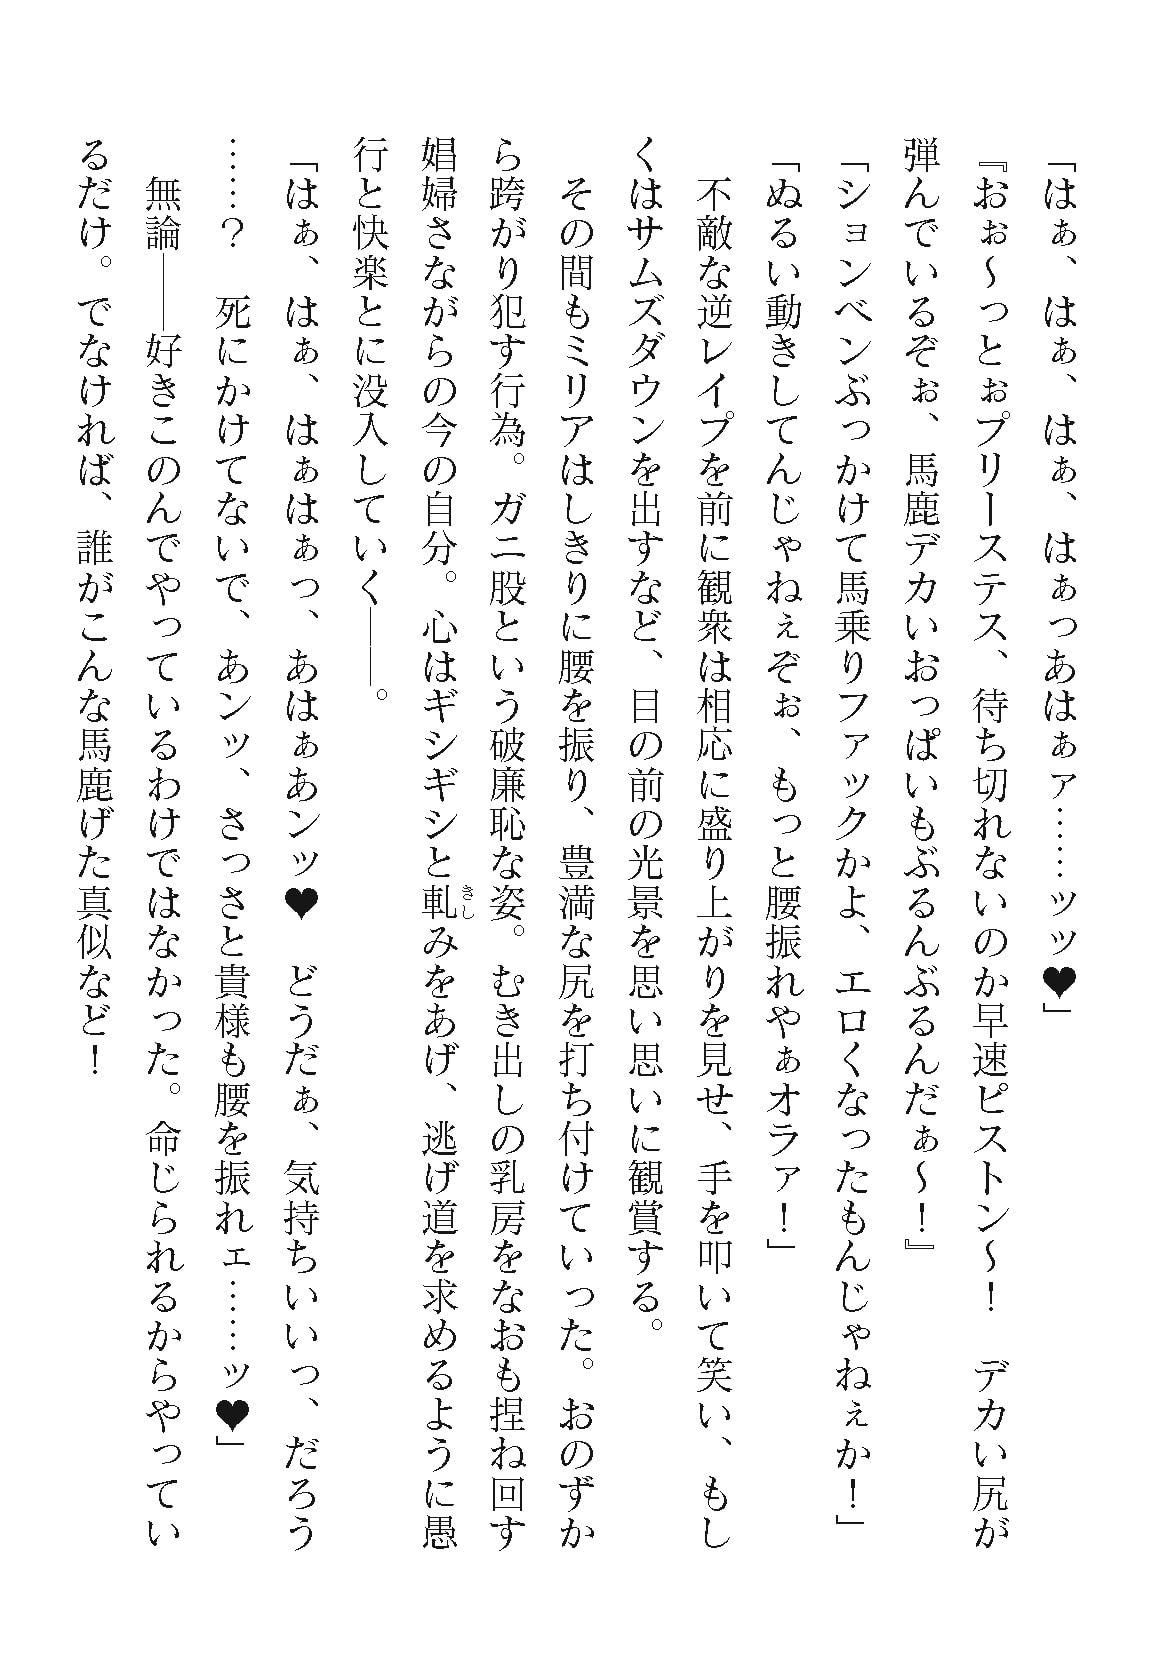 「はぁ、はぁ、はぁ、はぁっあはぁァ……ッッ♥」
『おぉ～っとぉプリーステス、待ち切れないのか早速ピストン～！　デカい尻が
弾んでいるぞぉ、馬鹿デカいおっぱいもぶるんぶるんだぁ～！』
「ションベンぶっかけて馬乗りファックかよ、エロくなったもんじゃねぇか！」
「ぬるい動きしてんじゃねぇぞぉ、もっと腰振れやぁオラァ！」
　不敵な逆レイプを前に観衆は相応に盛り上がりを見せ、手を叩いて笑い、もし
くはサムズダウンを出すなど、目の前の光景を思い思いに観賞する。
　その間もミリアはしきりに腰を振り、豊満な尻を打ち付けていった。おのずか
ら跨がり犯す行為。ガニ股という破廉恥な姿。むき出しの乳房をなおも捏ね回す
娼婦さながらの今の自分。心はギシギシと軋きしみをあげ、逃げ道を求めるように愚
行と快楽とに没入していく――。
「はぁ、はぁ、はぁはぁっ、あはぁあンッ♥　どうだぁ、気持ちいいっ、だろう
……？　死にかけてないで、あンッ、さっさと貴様も腰を振れェ……ッ♥」
　無論――好きこのんでやっているわけではなかった。命じられるからやってい
るだけ。でなければ、誰がこんな馬鹿げた真似など！